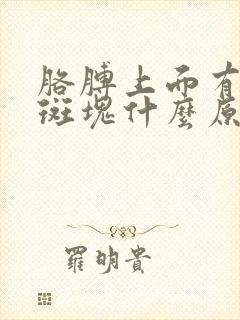 胳膊上而有
斑塊什麼原
羅明貴